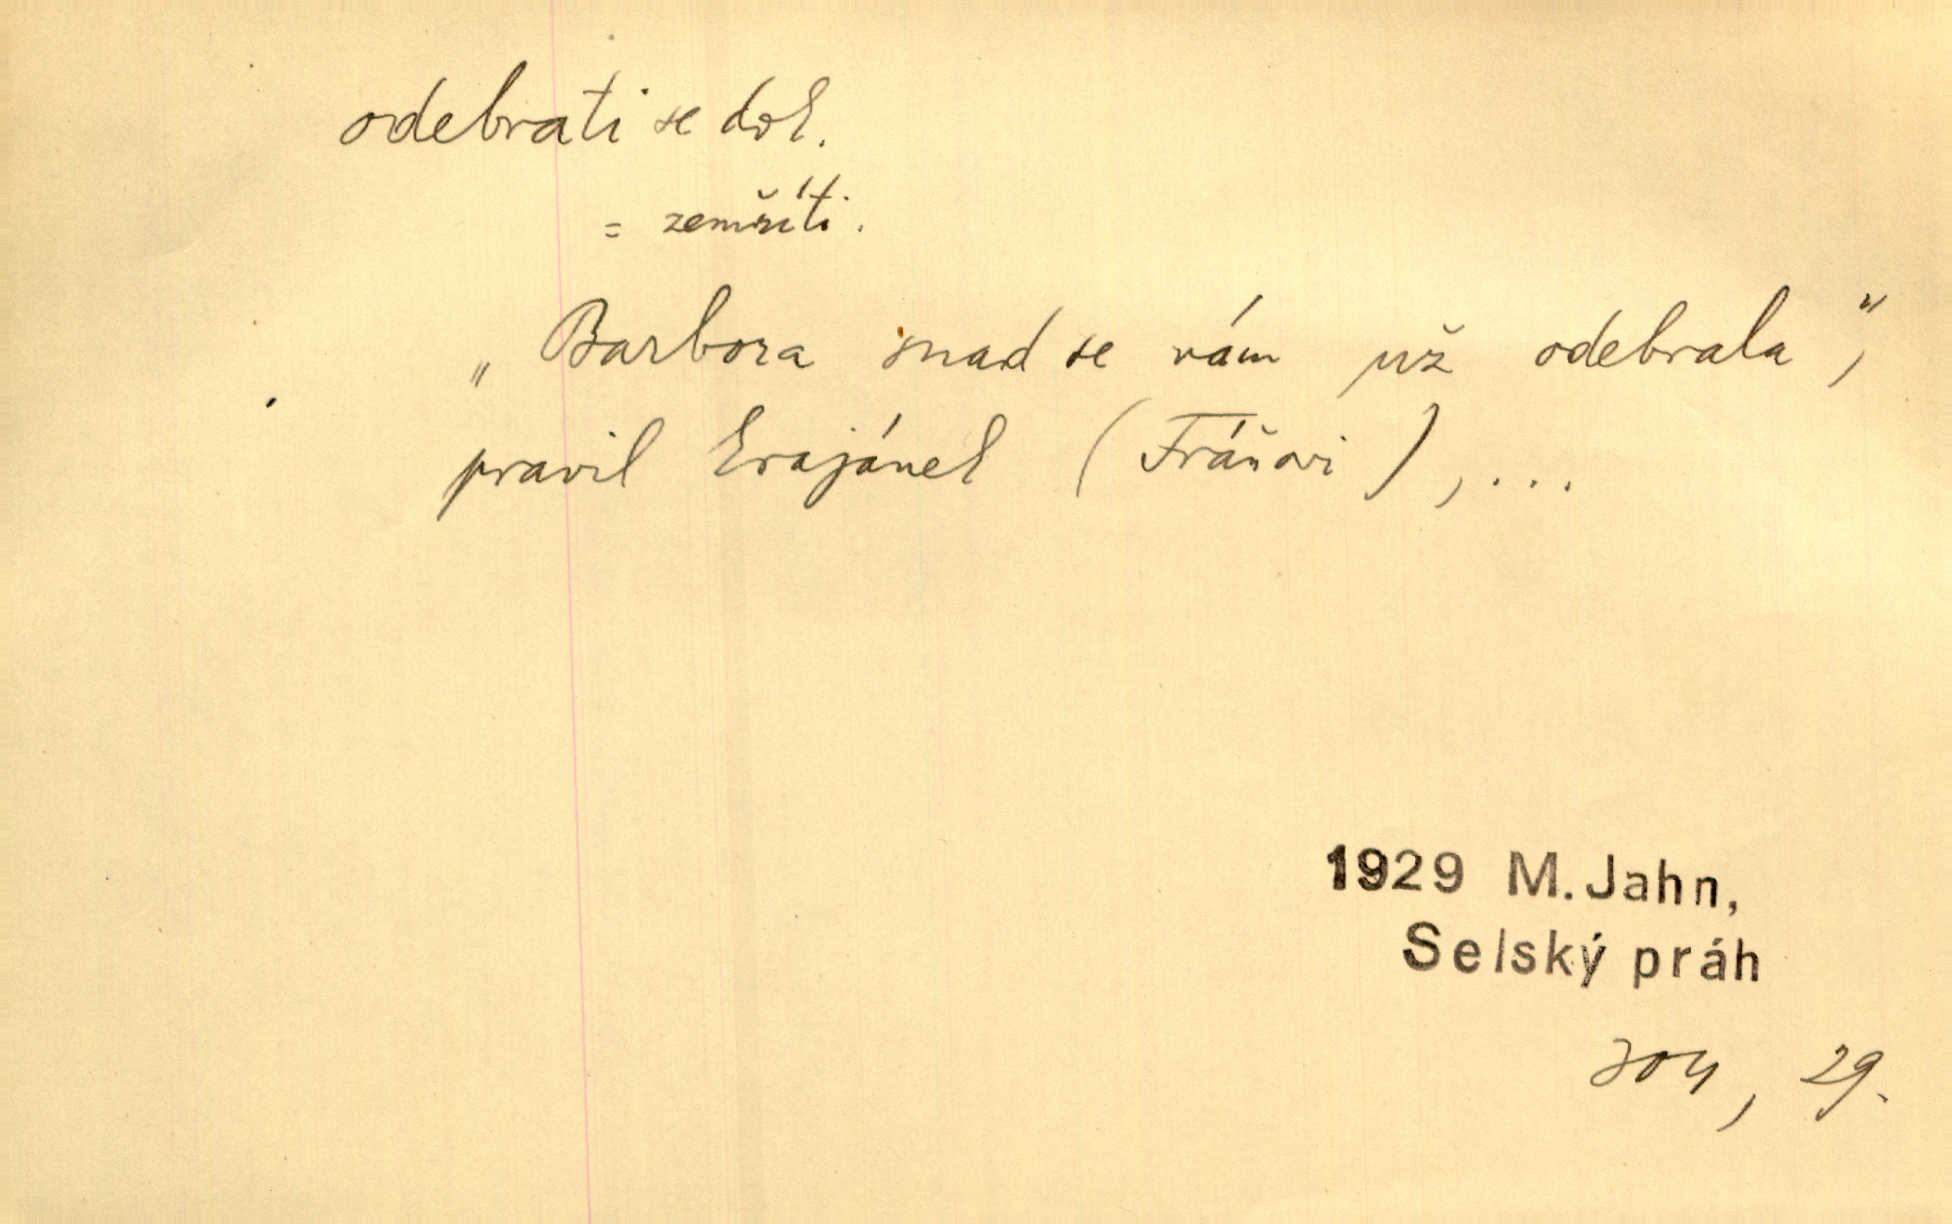 odebrati se dok.
= zemříti.
„Barbora snad se vám už odebrala“,
pravil Krajánek (Fráňovi), ...
1929 M. Jahn,
Selský práh
304, 29.